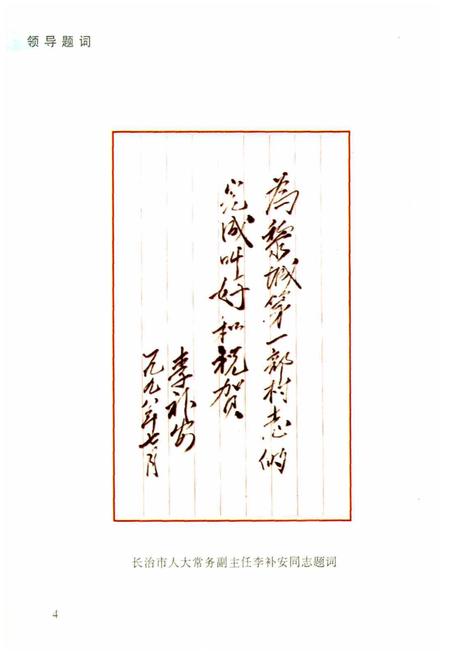 领导题词
为黎城第一部村志的
完成叫好和祝贺
李补安
一九九八年七月
长治市人大常务副主任李补安同志题词
4